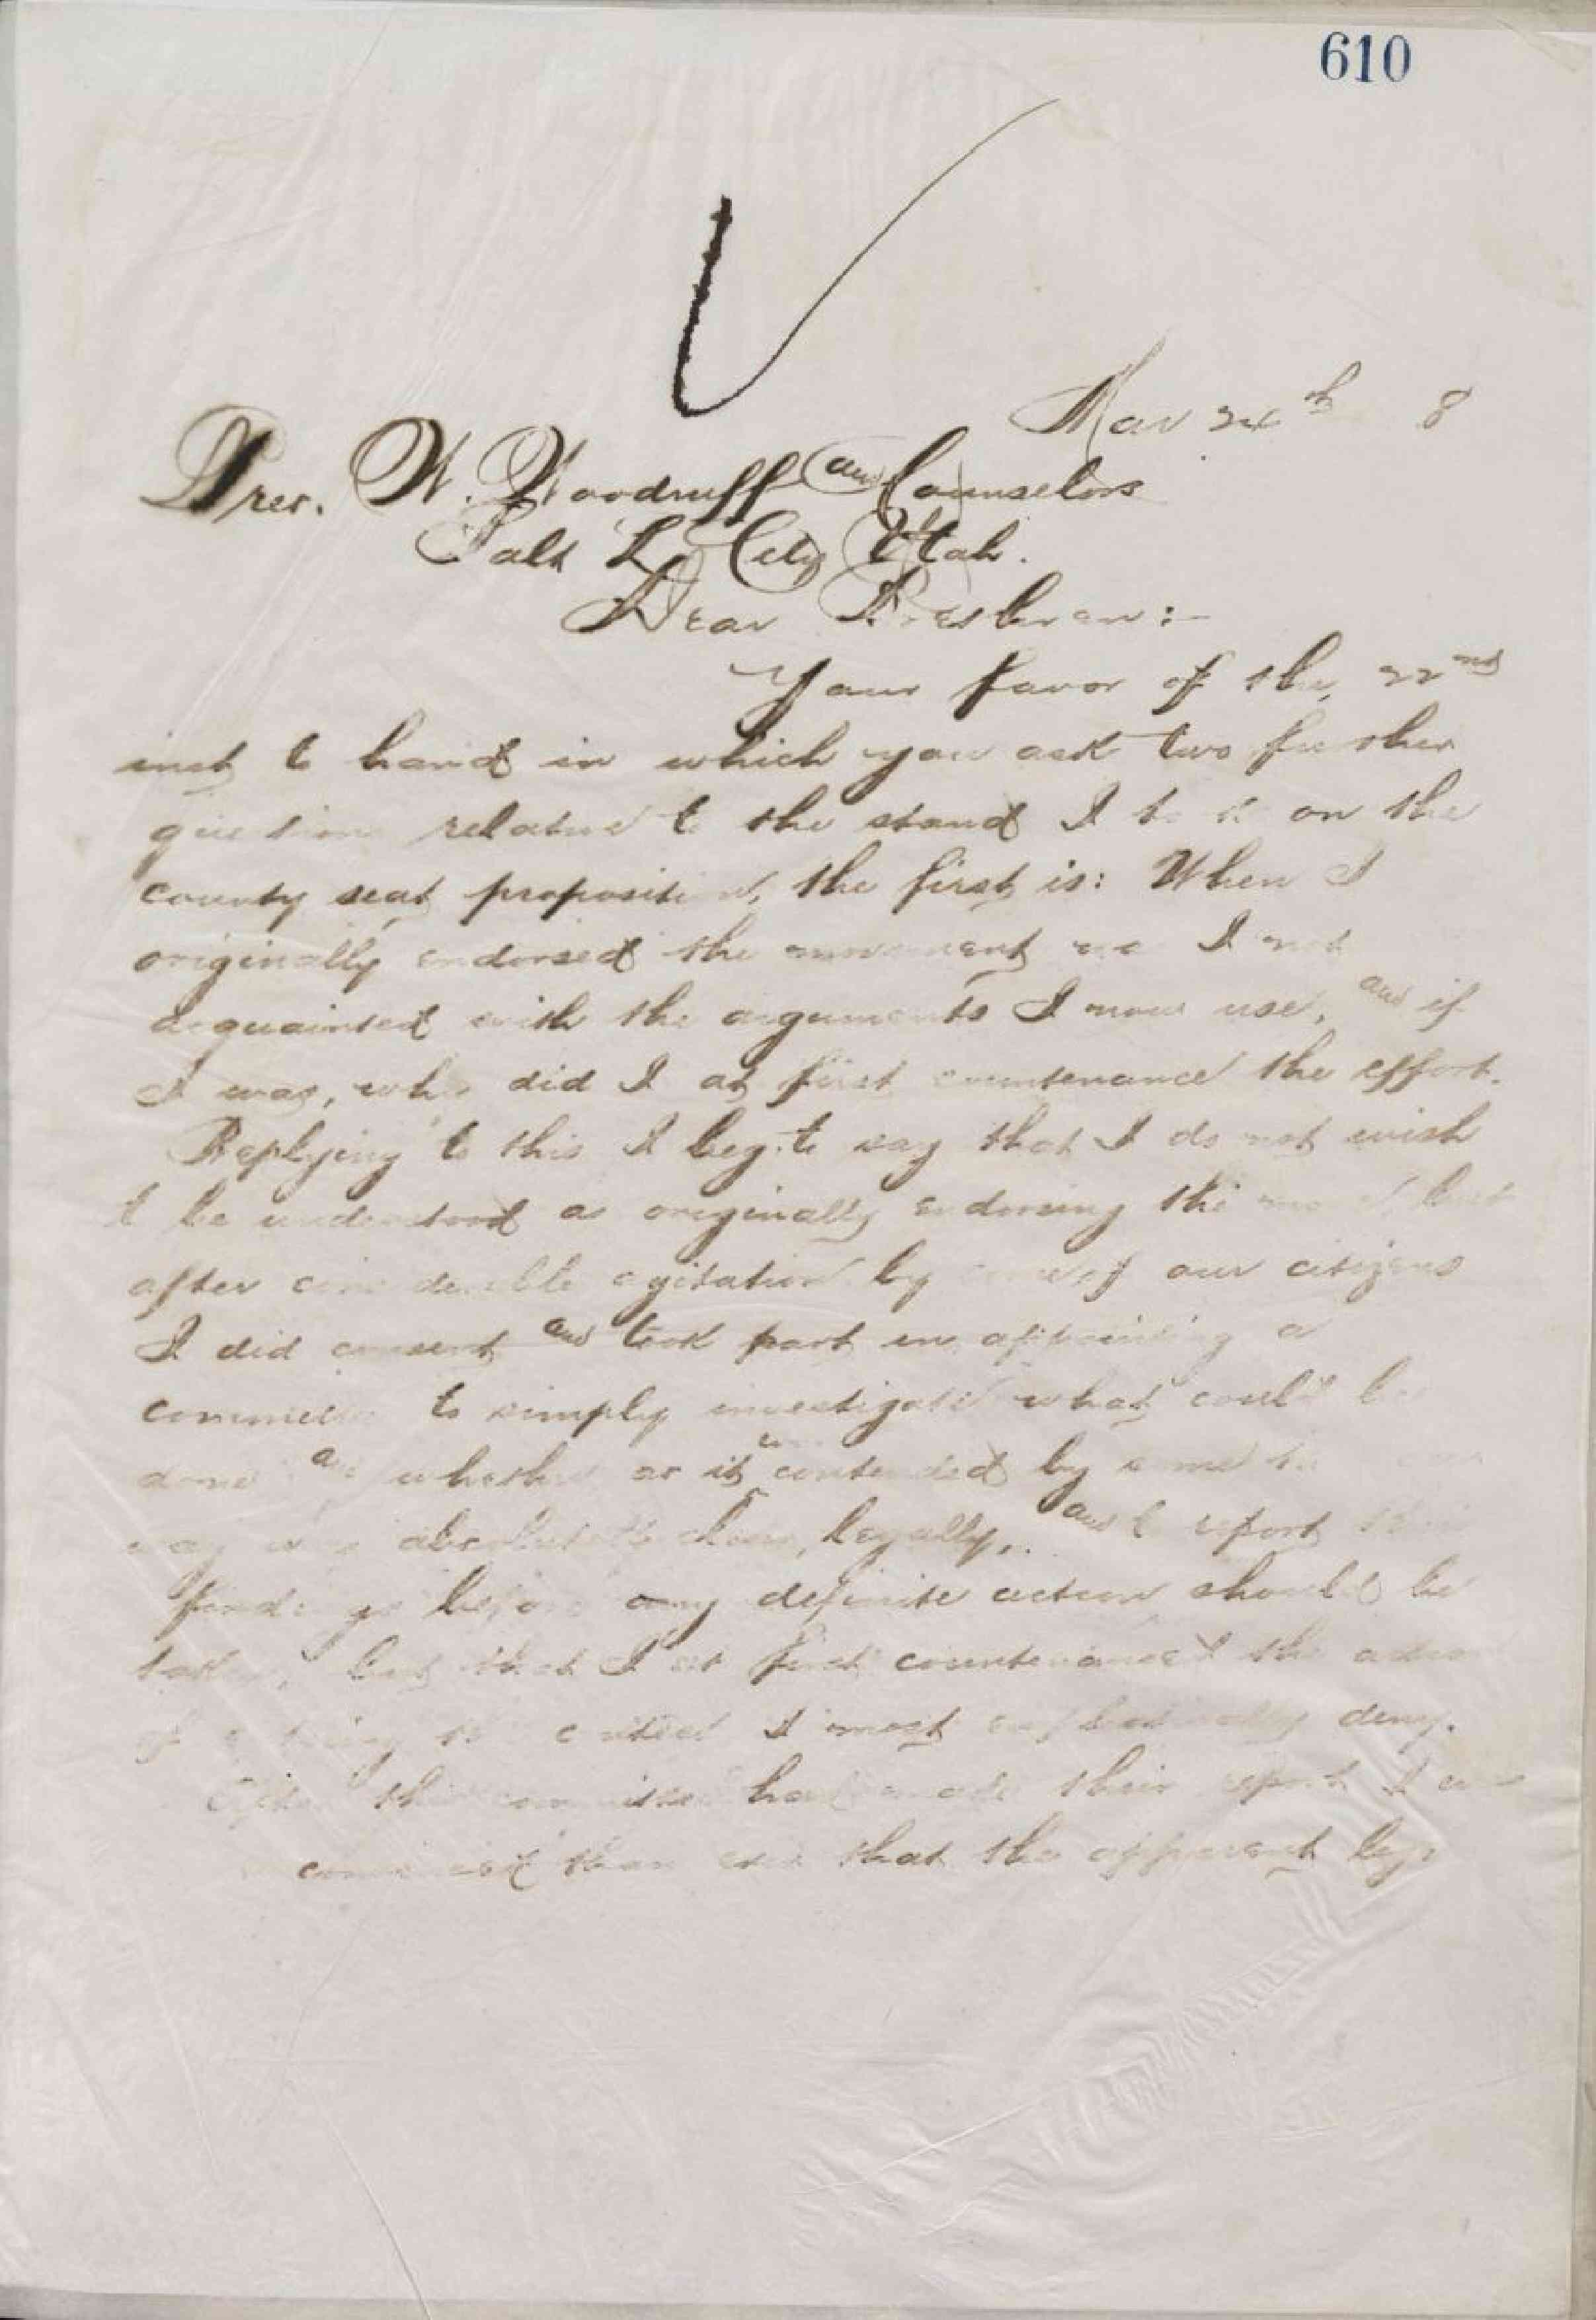 610
Mar 24th 8
Pres. W. Woodruff and Counselors
Salt L City Utah.
Dear Brethren:-
Your favor of the 22nd
inst to hand in which you ask two further
questions relative to the stand I on the
county seat proposition, the first is: When I
originally endorsed the movement was I not
acquainted with the arguments I now use, and if
I was, why did I at first countenance the effort.
Replying to this I beg to say that I do not wish
to be understood as originally endorsing the but
after considerable agitation by some of our citizens
I did consent and took part in appointing a
committee to simply investigate what could be
done and whether as it was contended by some
way was absolutely clear, legally, and to report their
findings before any definite action should be
taken, but that I at first countenanced the action
of I most emphatically deny.
After the committee had made their report I was
convinced than ever that the apparent